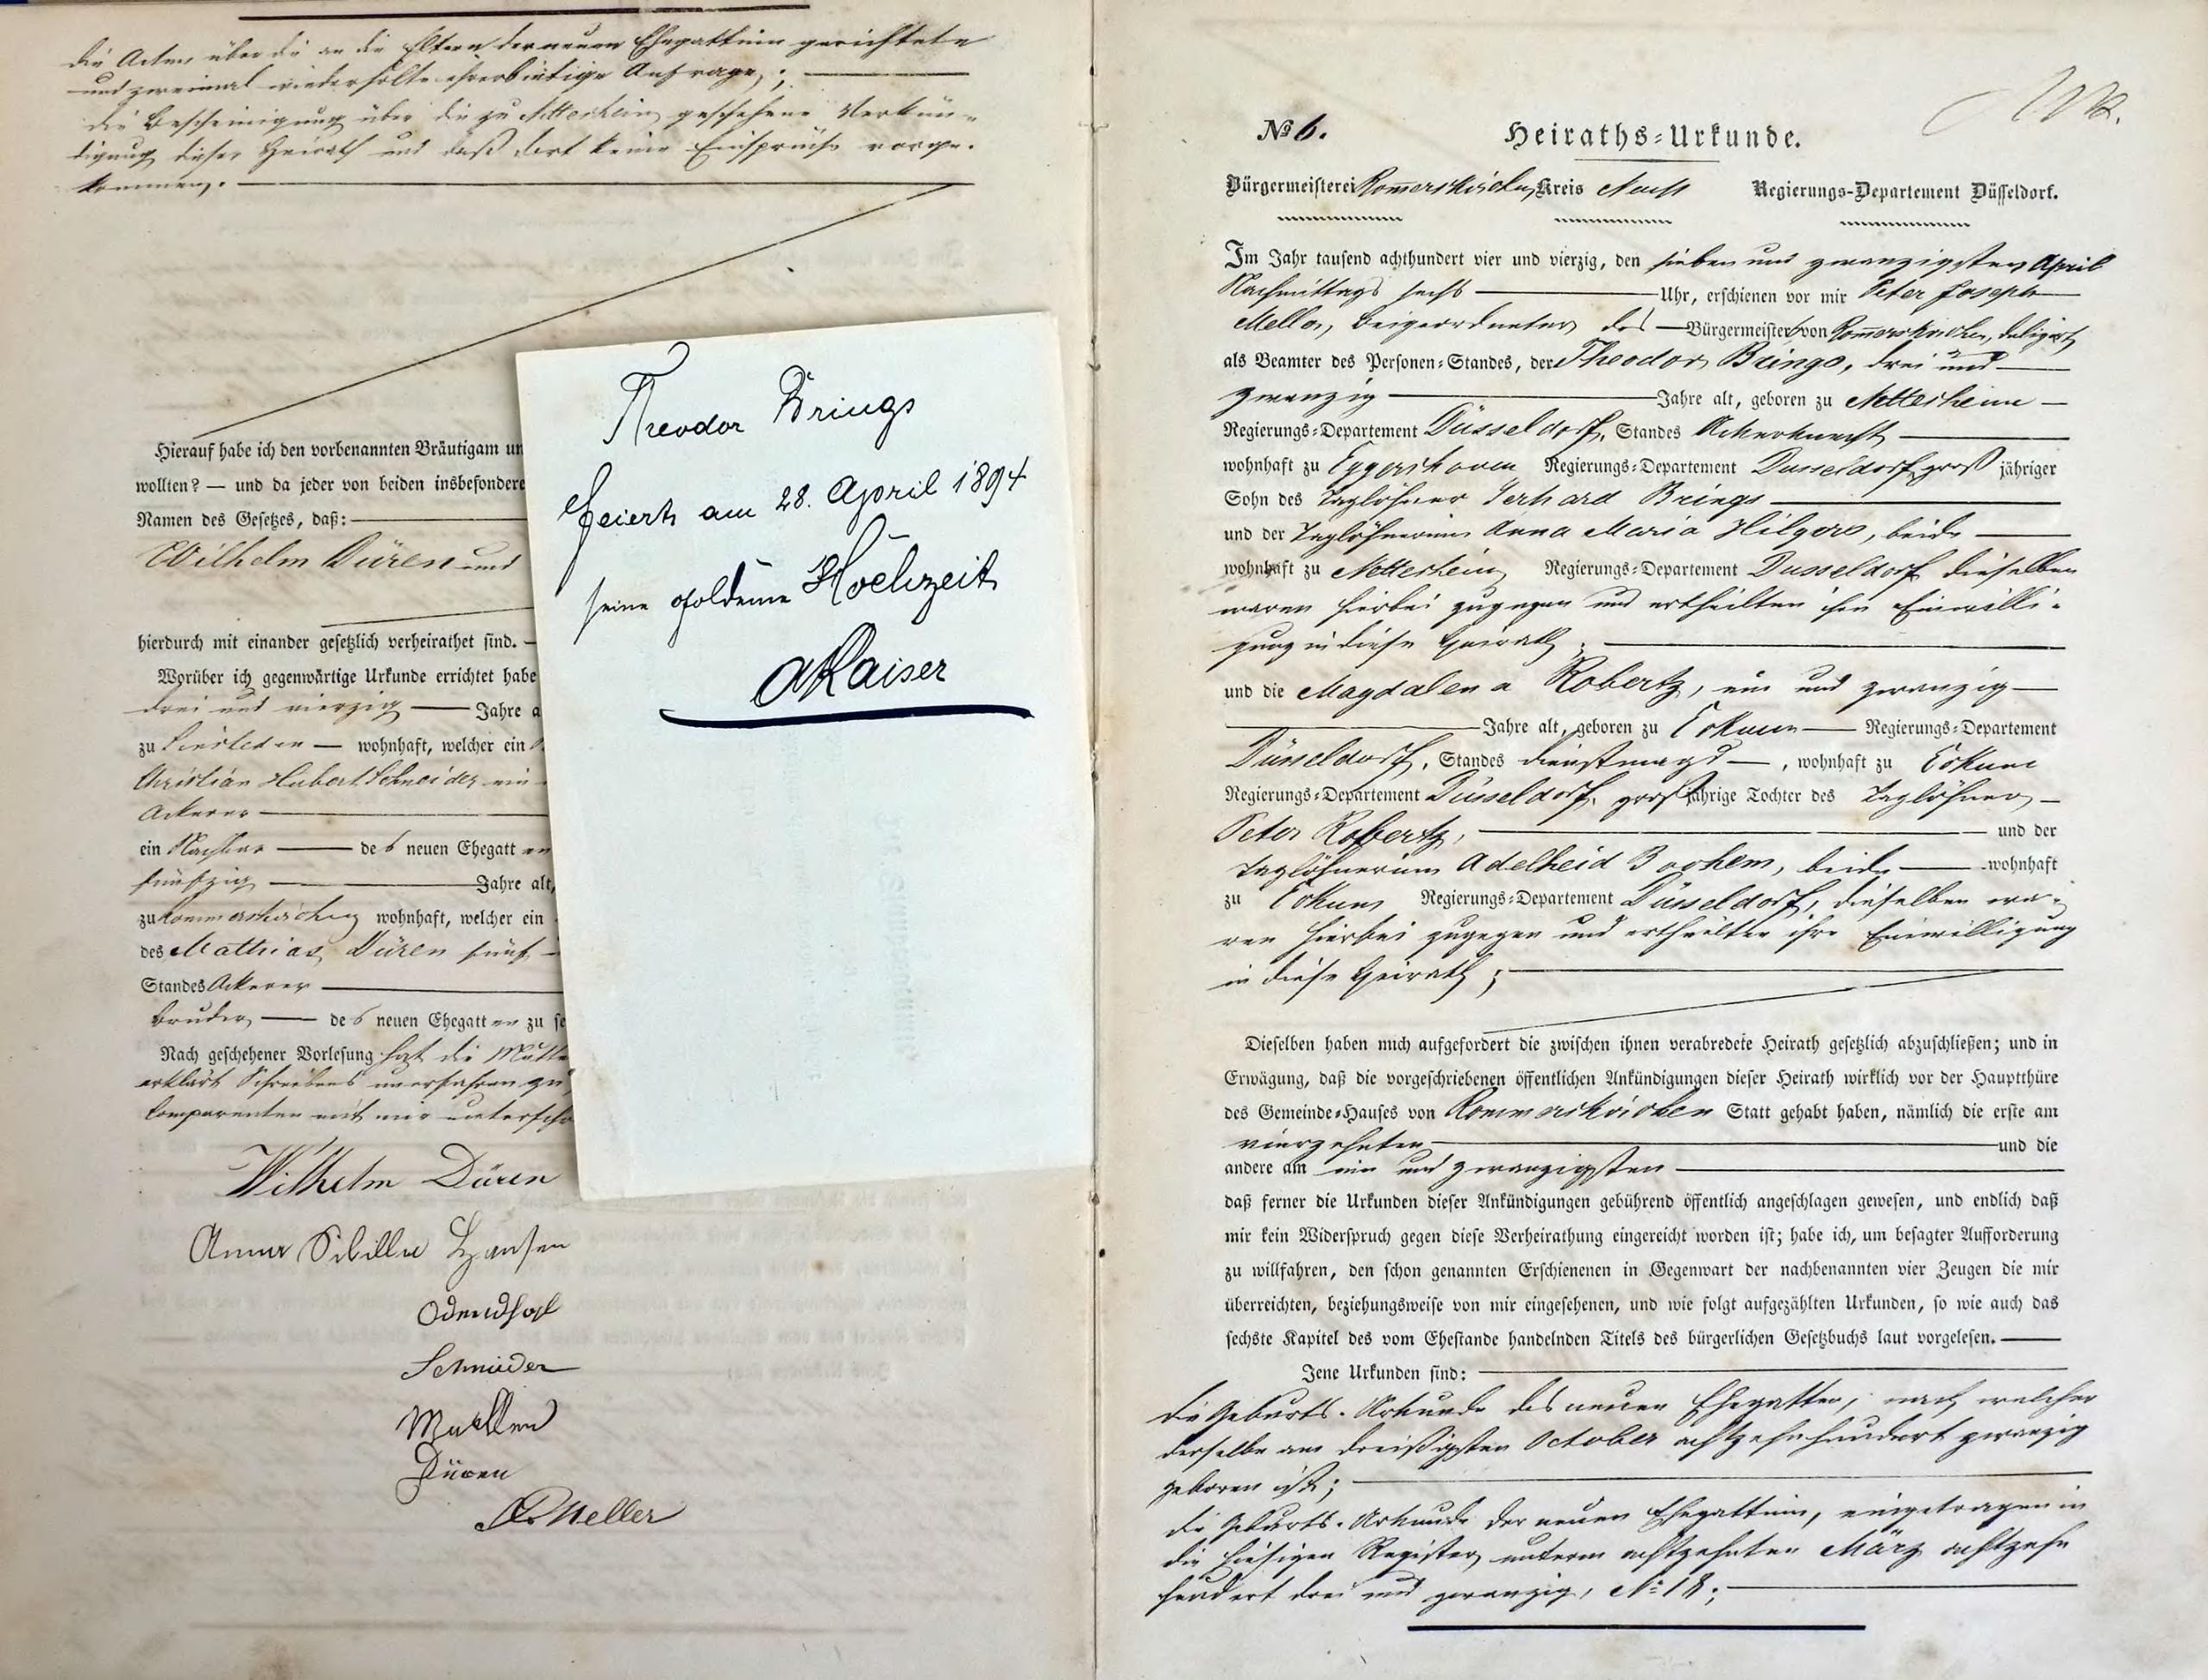 Die Acten über die an die Eltern der neuen Ehegattinn gerichtete
und zweimal wiederholte ehrerbietige Anfrage;
die Bescheinigung über die zu Nettesheim geschehene Verkün-
digung dieser Heirath und daß dort keine Einsprüche vorge-
kommen.
Hierauf habe ich den vorbenannten Bräutigam un
wollten? — und da jeder von beiden insbesondere
Namen des Gesetzes, daß:
Wilhelm Düren und
hierdurch mit einander gesetzlich verheirathet sind.
Worüber ich gegenwärtige Urkunde errichtet habe
drei und vierzig Jahre a
zu wohnhaft, welcher ein
Christian Hubert Schneider ein
Ackerer
ein Nachbar des neuen Ehegatten
fünfzig Jahre alt,
zu Rommerskirchen wohnhaft, welcher ein
des Mathias Düren fünf
Standes Ackerer
Bruder des neuen Ehegatten zu se
Nach geschehener Vorlesung hat die Mutte
erklärt Schreibens unerfahren zu
Comparenten mit mir unterschr
Wilhelm Düren
Anna Sibilla Hansen
Odendahl
Schneider
Düren
Meller
Theodor Brings
feiert am 28. April 1894
seine goldene Hochzeit
AKaiser
№ 6.
Heiraths-Urkunde.
Bürgermeisterei Rommerskirchen, Kreis Neuß Regierungs-Departement Düsseldorf.
Im Jahr tausend achthundert vier und vierzig, den sieben und zwanzigsten April
Nachmittags sechs Uhr, erschienen vor mir Peter Joseph
Meller, Beigeordneter des Bürgermeisters von Rommerskirchen, deligirt
als Beamter des Personen-Standes, der Theodor Brings, drei und
zwanzig Jahre alt, geboren zu Nettesheim
Regierungs-Departement Düsseldorf, Standes Ackerknecht
wohnhaft zu Eggershoven Regierungs-Departement Dusseldorf, groß jähriger
Sohn des Taglöhner Gerhard Brings
und der Taglöhnerinn Anna Maria Hilgers, beide
wohnhaft zu Nettesheim Regierungs-Departement Dusseldorf dieselben
waren hierbei zugegen und ertheilten ihre Einwilli-
gung in diese Heirath;
und die Magdalena Robertz, ein und zwanzig
Jahre alt, geboren zu Eckum Regierungs-Departement
Düsseldorf, Standes Dienstmagd, wohnhaft zu Eckum
Regierungs-Departement Düsseldorf, groß jährige Tochter des Taglöhner
Peter Robertz, und der
Taglöhnerinn Adelheid Bochem, beide wohnhaft
zu Eckum Regierungs-Departement Düsseldorf, dieselben wa-
ren hierbei zugegen und ertheilten ihre Einwilligung
in diese Heirath;
Dieselben haben mich aufgefordert die zwischen ihnen verabredete Heirath gesetzlich abzuschließen; und in
Erwägung, daß die vorgeschriebenen öffentlichen Ankündigungen dieser Heirath wirklich vor der Hauptthüre
des Gemeinde-Hauses von Rommerskirchen Statt gehabt haben, nämlich die erste am
vierzehnten und die
andere am ein und zwanzigsten
daß ferner die Urkunden dieser Ankündigungen gebührend öffentlich angeschlagen gewesen, und endlich daß
mir kein Widerspruch gegen diese Verheirathung eingereicht worden ist; habe ich, um besagter Aufforderung
zu willfahren, den schon genannten Erschienenen in Gegenwart der nachbenannten vier Zeugen die mir
überreichten, beziehungsweise von mir eingesehenen, und wie folgt aufgezählten Urkunden, so wie auch das
sechste Kapitel des vom Ehestande handelnden Titels des bürgerlichen Gesetzbuchs laut vorgelesen.
Jene Urkunden sind:
die Geburts-Urkunde des neuen Ehegatten, nach welcher
derselbe am dreißigsten October achtzehnhundert zwanzig
geboren ist;
die Geburts-Urkunde der neuen Ehegattinn, eingetragen in
die hiesigen Register unterm achtzehnten März achtzehn
hundert drei und zwanzig, No 18;